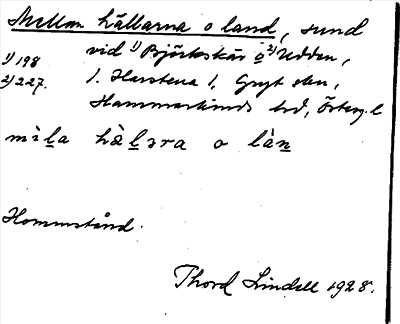 Mellan hällarna o land, sund
vid 1) Björkskär o 2) Udden,
1) 198
2) 227.
l. Harstena l, Gryt skn,
Hammarkinds hd, Österg. l
mìl̲a hàl̲ɜra o làn̲
Hommstånd.
Thord Lindell 1928.